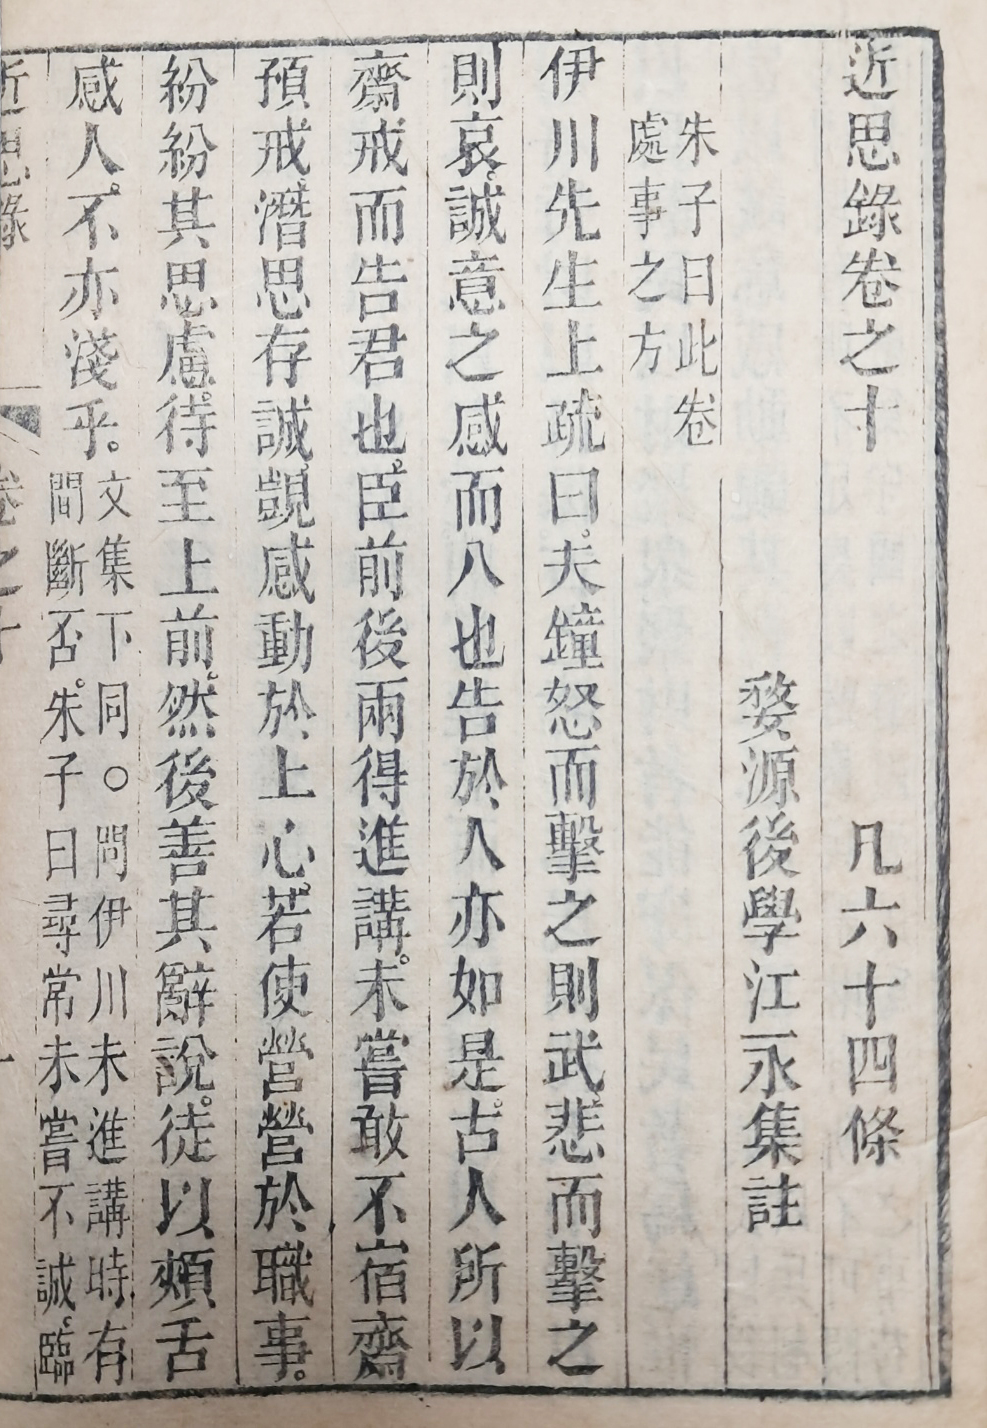 近思錄卷之十　凡六十四條
婺源後學江永集註
朱子曰此卷
處事之方
伊川先生上疏曰。夫鐘怒而擊之則武悲而擊之
則哀。誠意之感而入也告於人亦如是。古人所以
齋戒而告君也。臣前後兩得進講。未嘗敢不宿齋
預戒潛思存誠覬感動於上心。若使營營於職事。
紛紛其思慮。待至上前。然後善其辭說。徒以頰舌
感人。不亦淺乎。
文集下同○問伊川未進講時有
間斷否。朱子曰尋常未嘗不誠。臨
近思錄　卷之十